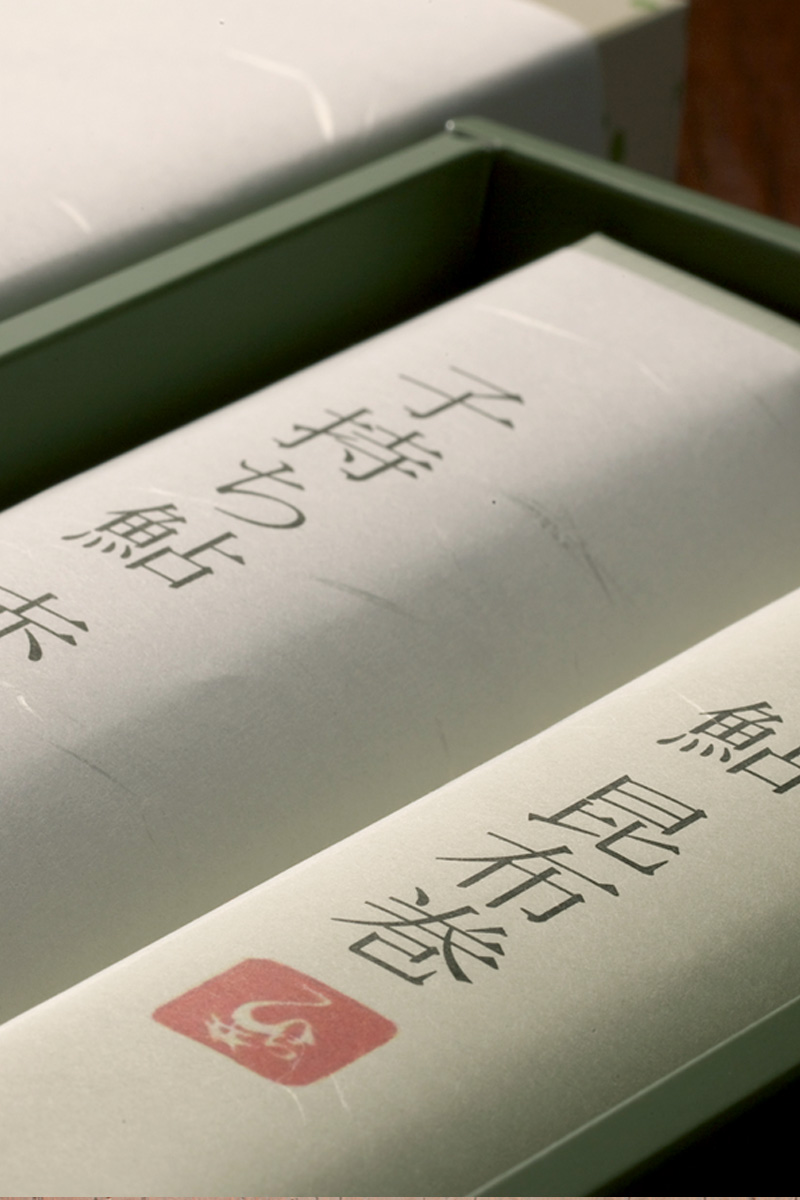 子持ち鮎
鮎昆布巻